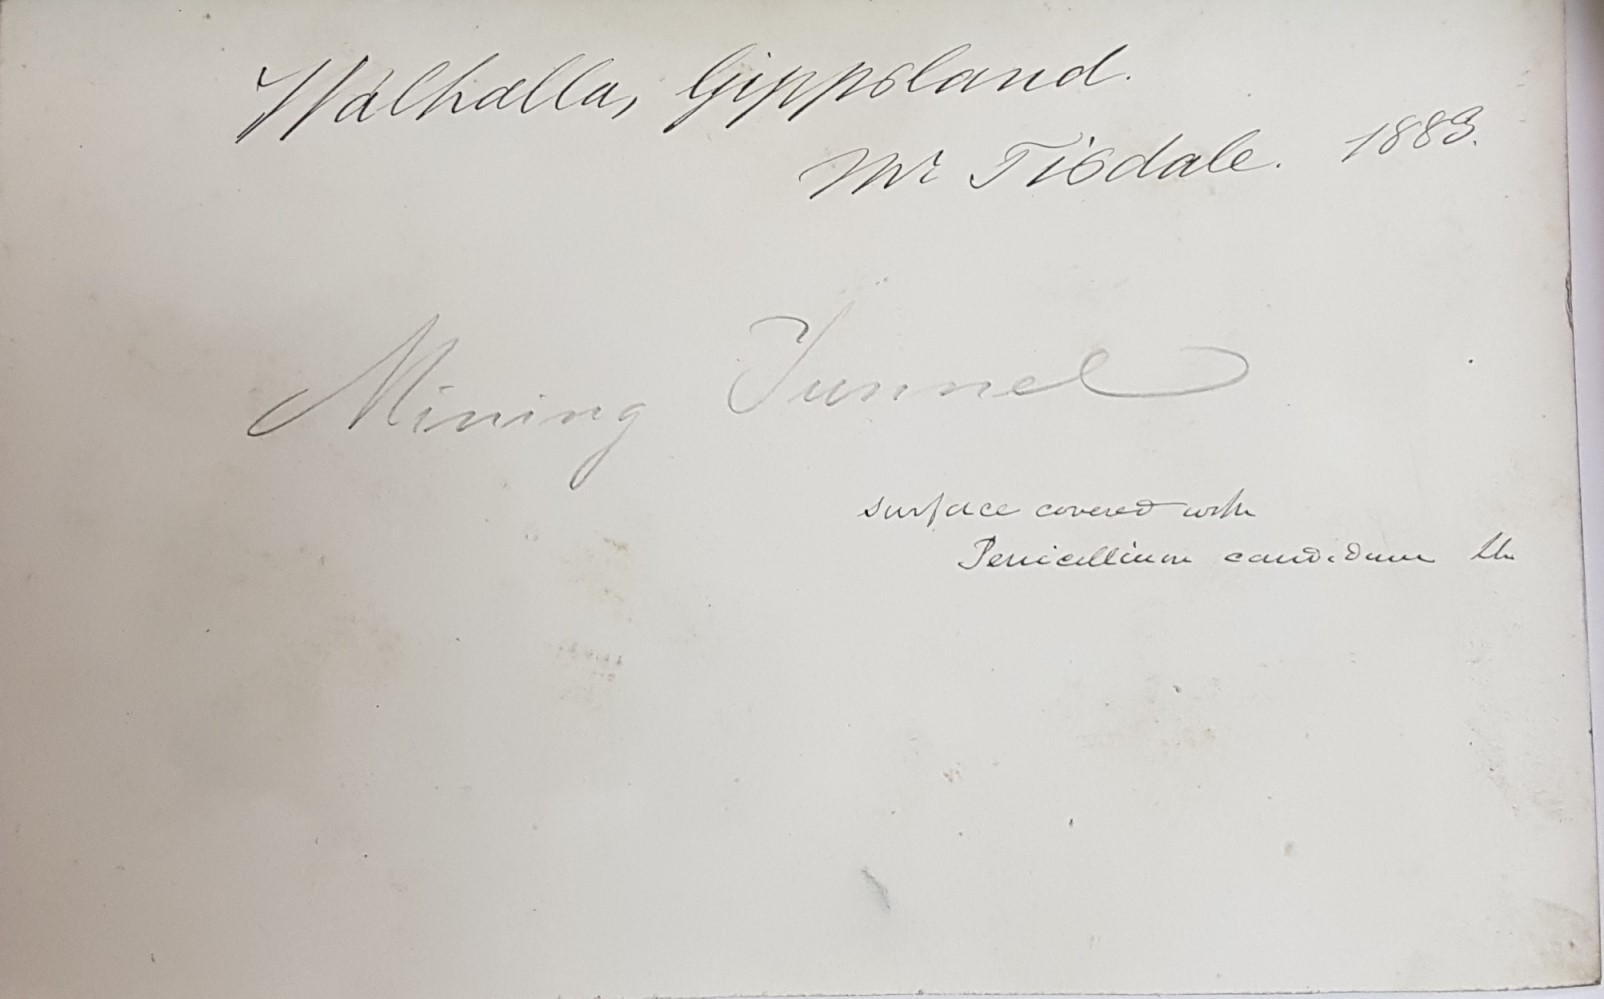 Walhalla, Gippsland.
Mr Tisdale. 1883.
Mining Tunnel
surface covered with
Penicillium candidum Lk